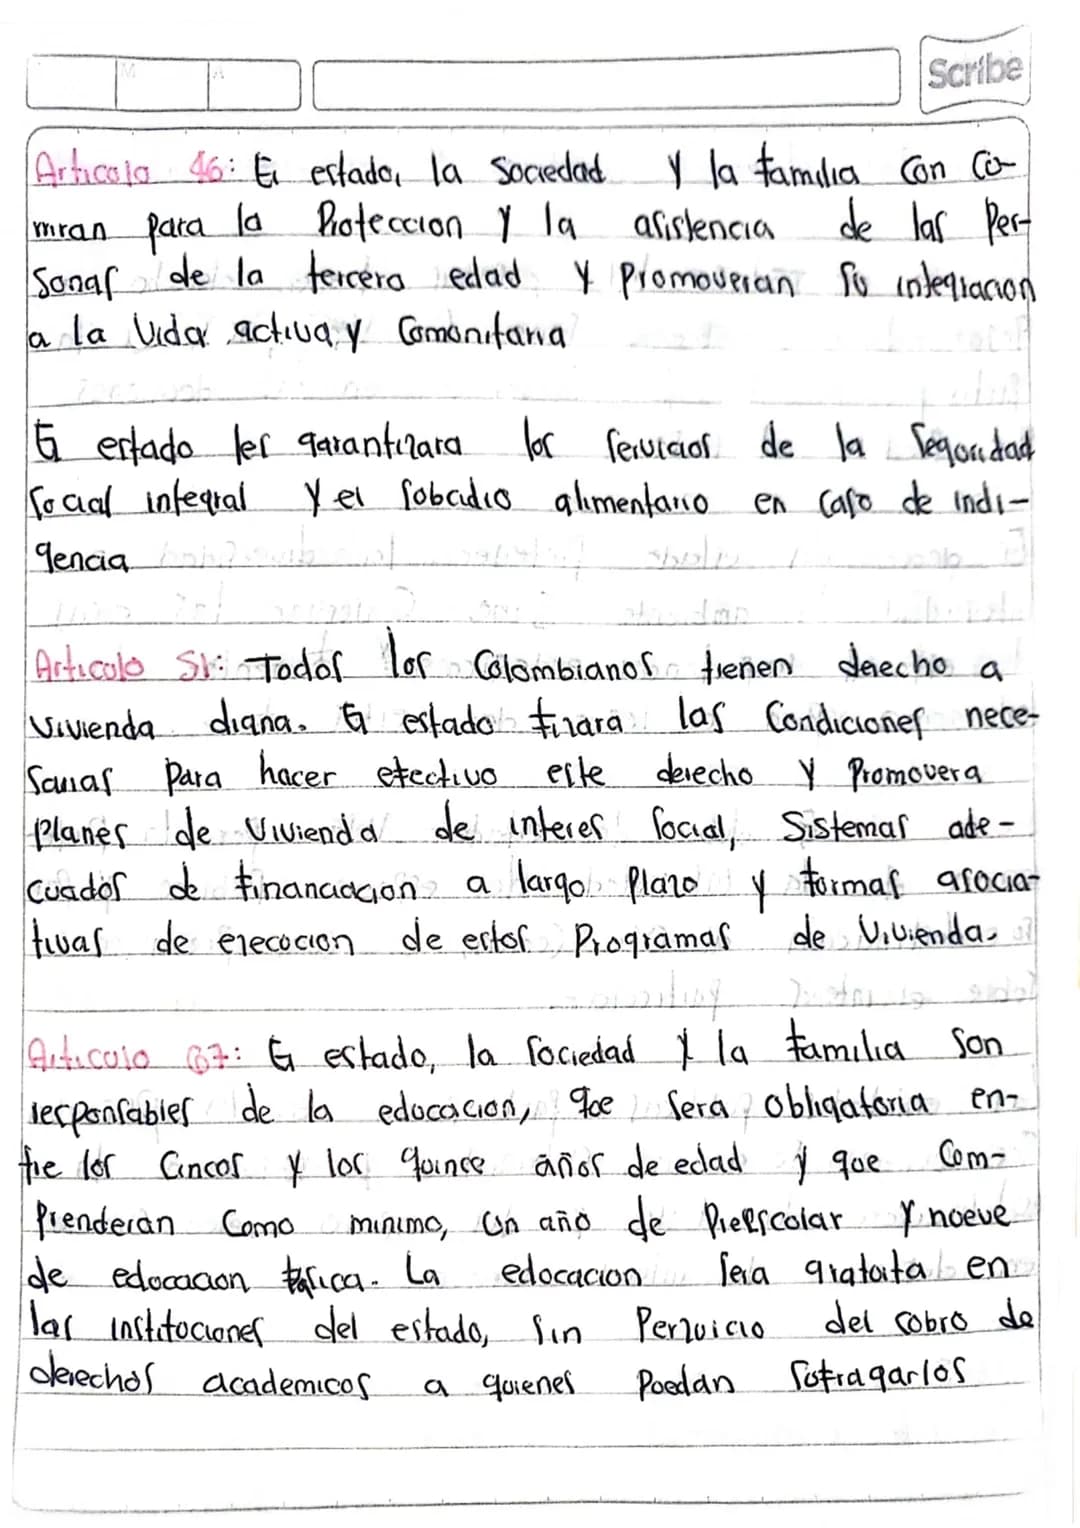 Scribe
Articulo 46: El estado, la Sociedad y la familia con co-
rriran para la Proteccion y la asistencia de las Per-
Sonas de la tercera edad y Promoveran su integracion
a la Vida activa y Comonitaria
El estado les garantizara los servicios de la Segoridad
Social integral y el sobcidio alimentario en caso de indi-
gencia
Articulo 51: Todos los Colombianos tienen derecho a
Vivienda digna. El estado fizara las Condiciones nece-
Sarias Para hacer efectivo este derecho y Promovera
Planes de Vivienda de interes Social, Sistemas ade-
cuados de financiacion a largo Plazo y formas asocia-
tivas de ejecocion de estos Programas de Vivienda.
Articulo 67: El estado, la Sociedad y la familia Son
responsables de la edocacion, qoe Sera obligatoria en-
tre los Cincos y los quince años de edad y que Com-
Prenderan Como minimo, un año de PreEscolar y noeve
de edocacion basica. La edocacion Sera gratoita en
las institociones del estado, Sin Perjuicio del cobro de
derechos academicos a quienes Poedan Sofragarlos